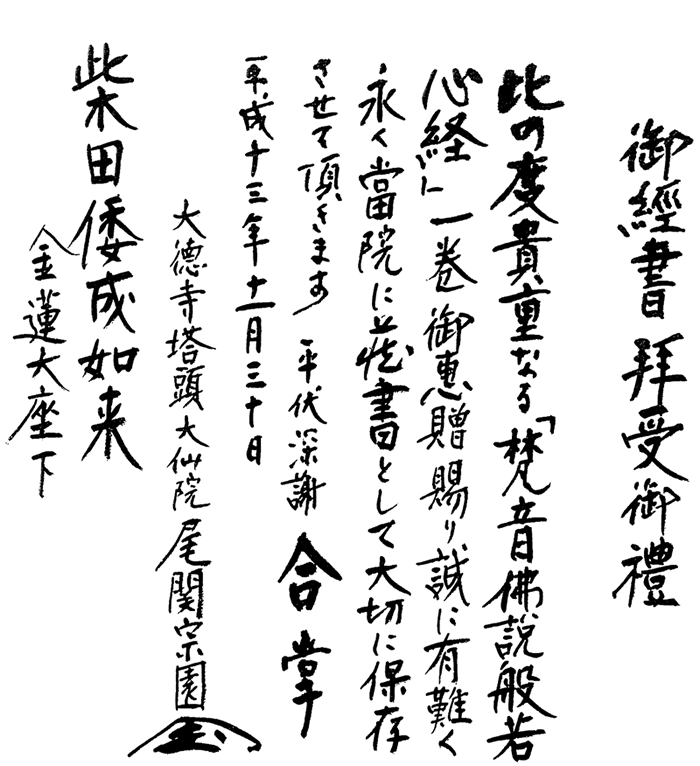 御經書 拜受御禮
此の度貴重なる「梵音佛説般若
心経」一巻御恵贈賜り誠に有難く
永く當院に蔵書として大切に保存
させて頂きます 平伏深謝 合掌
平成十三年十一月三十日
大徳寺塔頭大仙院 尾関宗園
柴田倭成如来
金蓮大座下